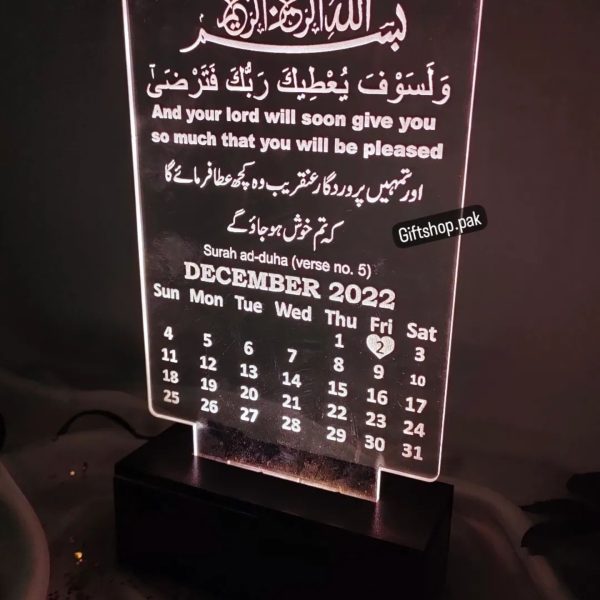 بسم الله الرحمن الرحيم
وَلَسَوْفَ يُعْطِيكَ رَبُّكَ فَتَرْضَىٰٓ
And your lord will soon give you
so much that you will be pleased
اور تمہیں پروردگار عنقریب وہ کچھ عطا فرمائے گا
کہ تم خوش ہو جاؤ گے
Giftshop.pak
Surah ad-duha (verse no. 5)
DECEMBER 2022
Sun Mon Tue Wed Thu Fri Sat
1 2 3
4 5 6 7 8 9 10
11 12 13 14 15 16 17
18 19 20 21 22 23 24
25 26 27 28 29 30 31